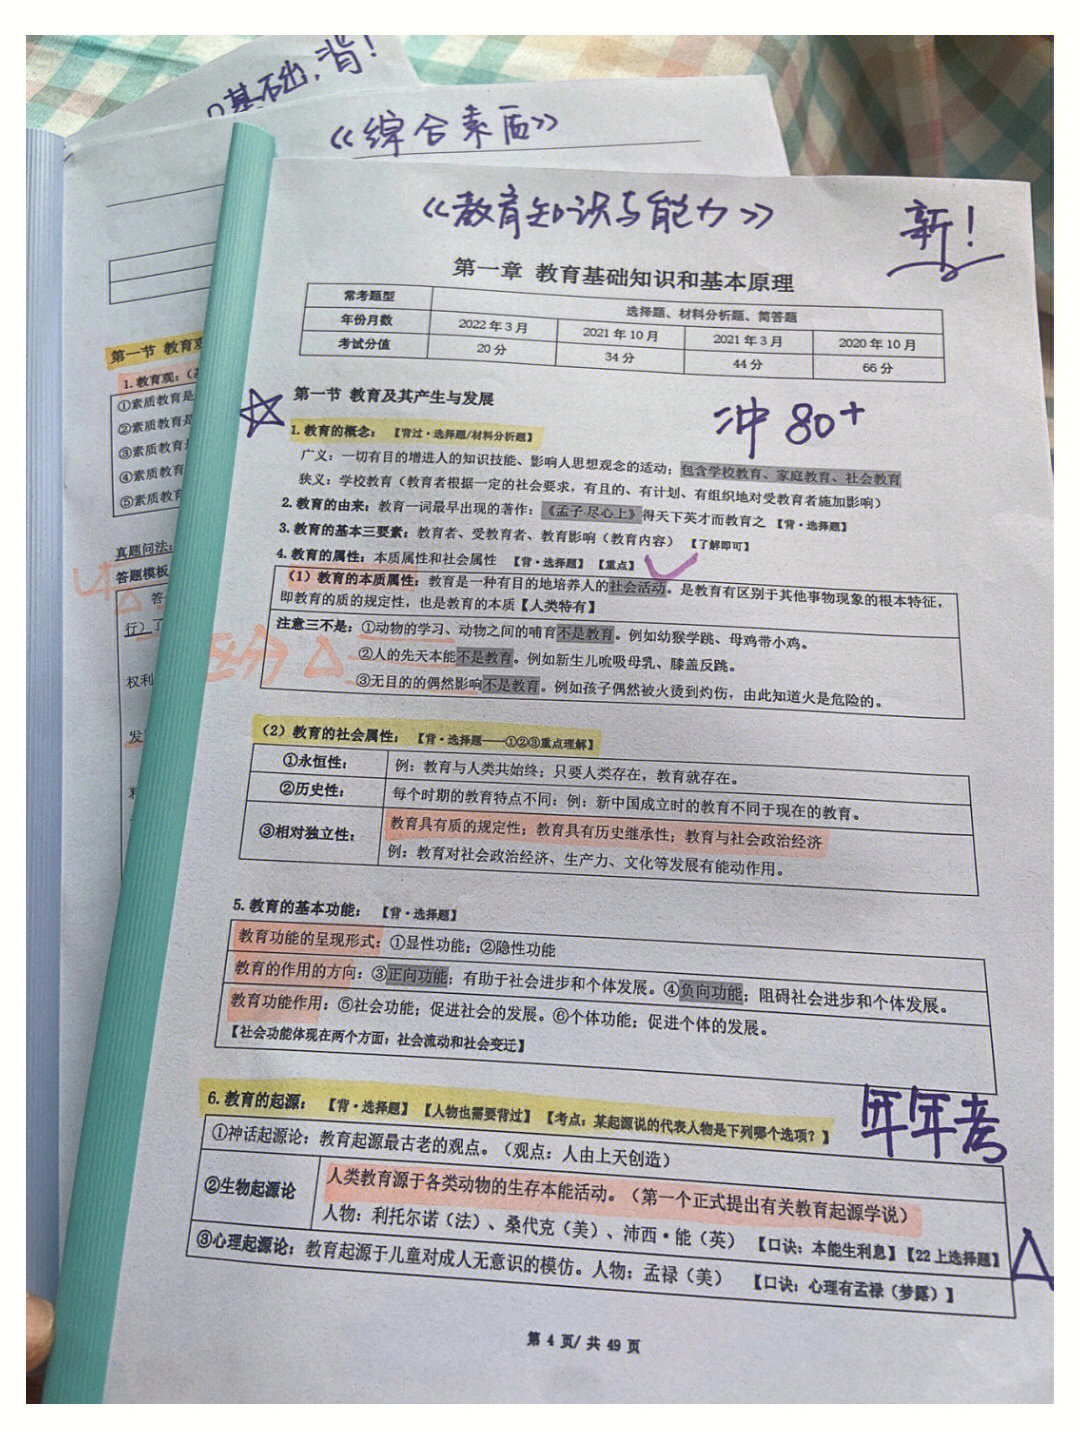 基础，背！
《综合素质》
《教育知识与能力》
新！
第一章 教育基础知识和基本原理
常考题型 选择题、材料分析题、简答题
年份月数 2022年3月 2021年10月 2021年3月 2020年10月
考试分值 20分 34分 44分 66分
第一节 教育及其产生与发展
冲80+
1.教育的概念：【背过·选择题/材料分析题】
广义：一切有目的增进人的知识技能、影响人思想观念的活动；包含学校教育、家庭教育、社会教育
狭义：学校教育（教育者根据一定的社会要求，有目的、有计划、有组织地对受教育者施加影响）
2.教育的由来：教育一词最早出现的著作：《孟子·尽心上》得天下英才而教育之【背·选择题】
3.教育的基本三要素：教育者、受教育者、教育影响（教育内容）【了解即可】
4.教育的属性：本质属性和社会属性【背·选择题】【重点】
（1）教育的本质属性：教育是一种有目的地培养人的社会活动。是教育有区别于其他事物现象的根本特征，
即教育的质的规定性，也是教育的本质【人类特有】
注意三不是：①动物的学习、动物之间的哺育不是教育。例如幼猴学跳、母鸡带小鸡。
②人的先天本能不是教育。例如新生儿吮吸母乳、膝盖反跳。
③无目的的偶然影响不是教育。例如孩子偶然被火烫到灼伤，由此知道火是危险的。
（2）教育的社会属性：【背·选择题——①②③重点理解】
①永恒性： 例：教育与人类共始终；只要人类存在，教育就存在。
②历史性： 每个时期的教育特点不同：例：新中国成立时的教育不同于现在的教育。
③相对独立性： 教育具有质的规定性；教育具有历史继承性；教育与社会政治经济
例：教育对社会政治经济、生产力、文化等发展有能动作用。
5.教育的基本功能：【背·选择题】
教育功能的呈现形式：①显性功能；②隐性功能
教育的作用的方向：③正向功能；有助于社会进步和个体发展。④负向功能；阻碍社会进步和个体发展。
教育功能作用：⑤社会功能；促进社会的发展。⑥个体功能；促进个体的发展。
【社会功能体现在两个方面：社会流动和社会变迁】
6.教育的起源：【背·选择题】【人物也需要背过】【考点：某起源说的代表人物是下列哪个选项？】
年年考
①神话起源论：教育起源最古老的观点。（观点：人由上天创造）
②生物起源论 人类教育源于各类动物的生存本能活动。（第一个正式提出有关教育起源学说）
人物：利托尔诺（法）、桑代克（美）、沛西·能（英）【口诀：本能生利息】【22上选择题】
③心理起源论：教育起源于儿童对成人无意识的模仿。人物：孟禄（美）【口诀：心理有孟禄（梦露）】
第 4 页/ 共 49 页
第一节 教育观
1.教育观：
①素质教育是
②素质教育是
③素质教育
④素质教育
⑤素质教育
真题问法：
答题模板
答
行）了
权利
发